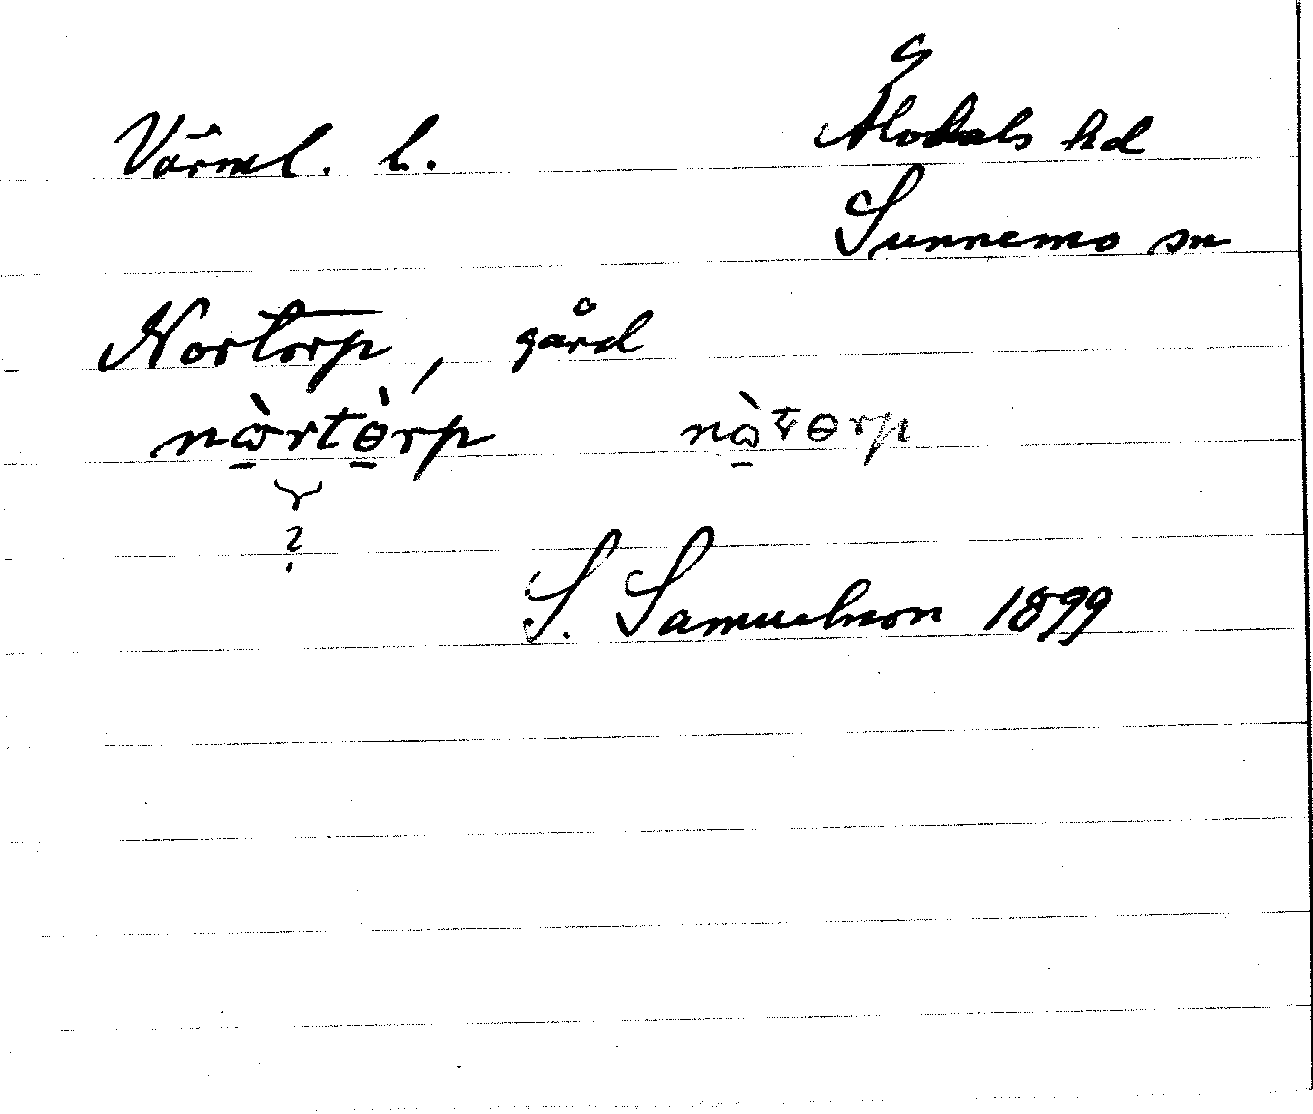 Värml. l. Älvdals hd
Sunnemo sn
Nortorp, gård
nὼ̱rtὸ̱rp nὼ̱tɵrp
?
S. Samuelsson 1899